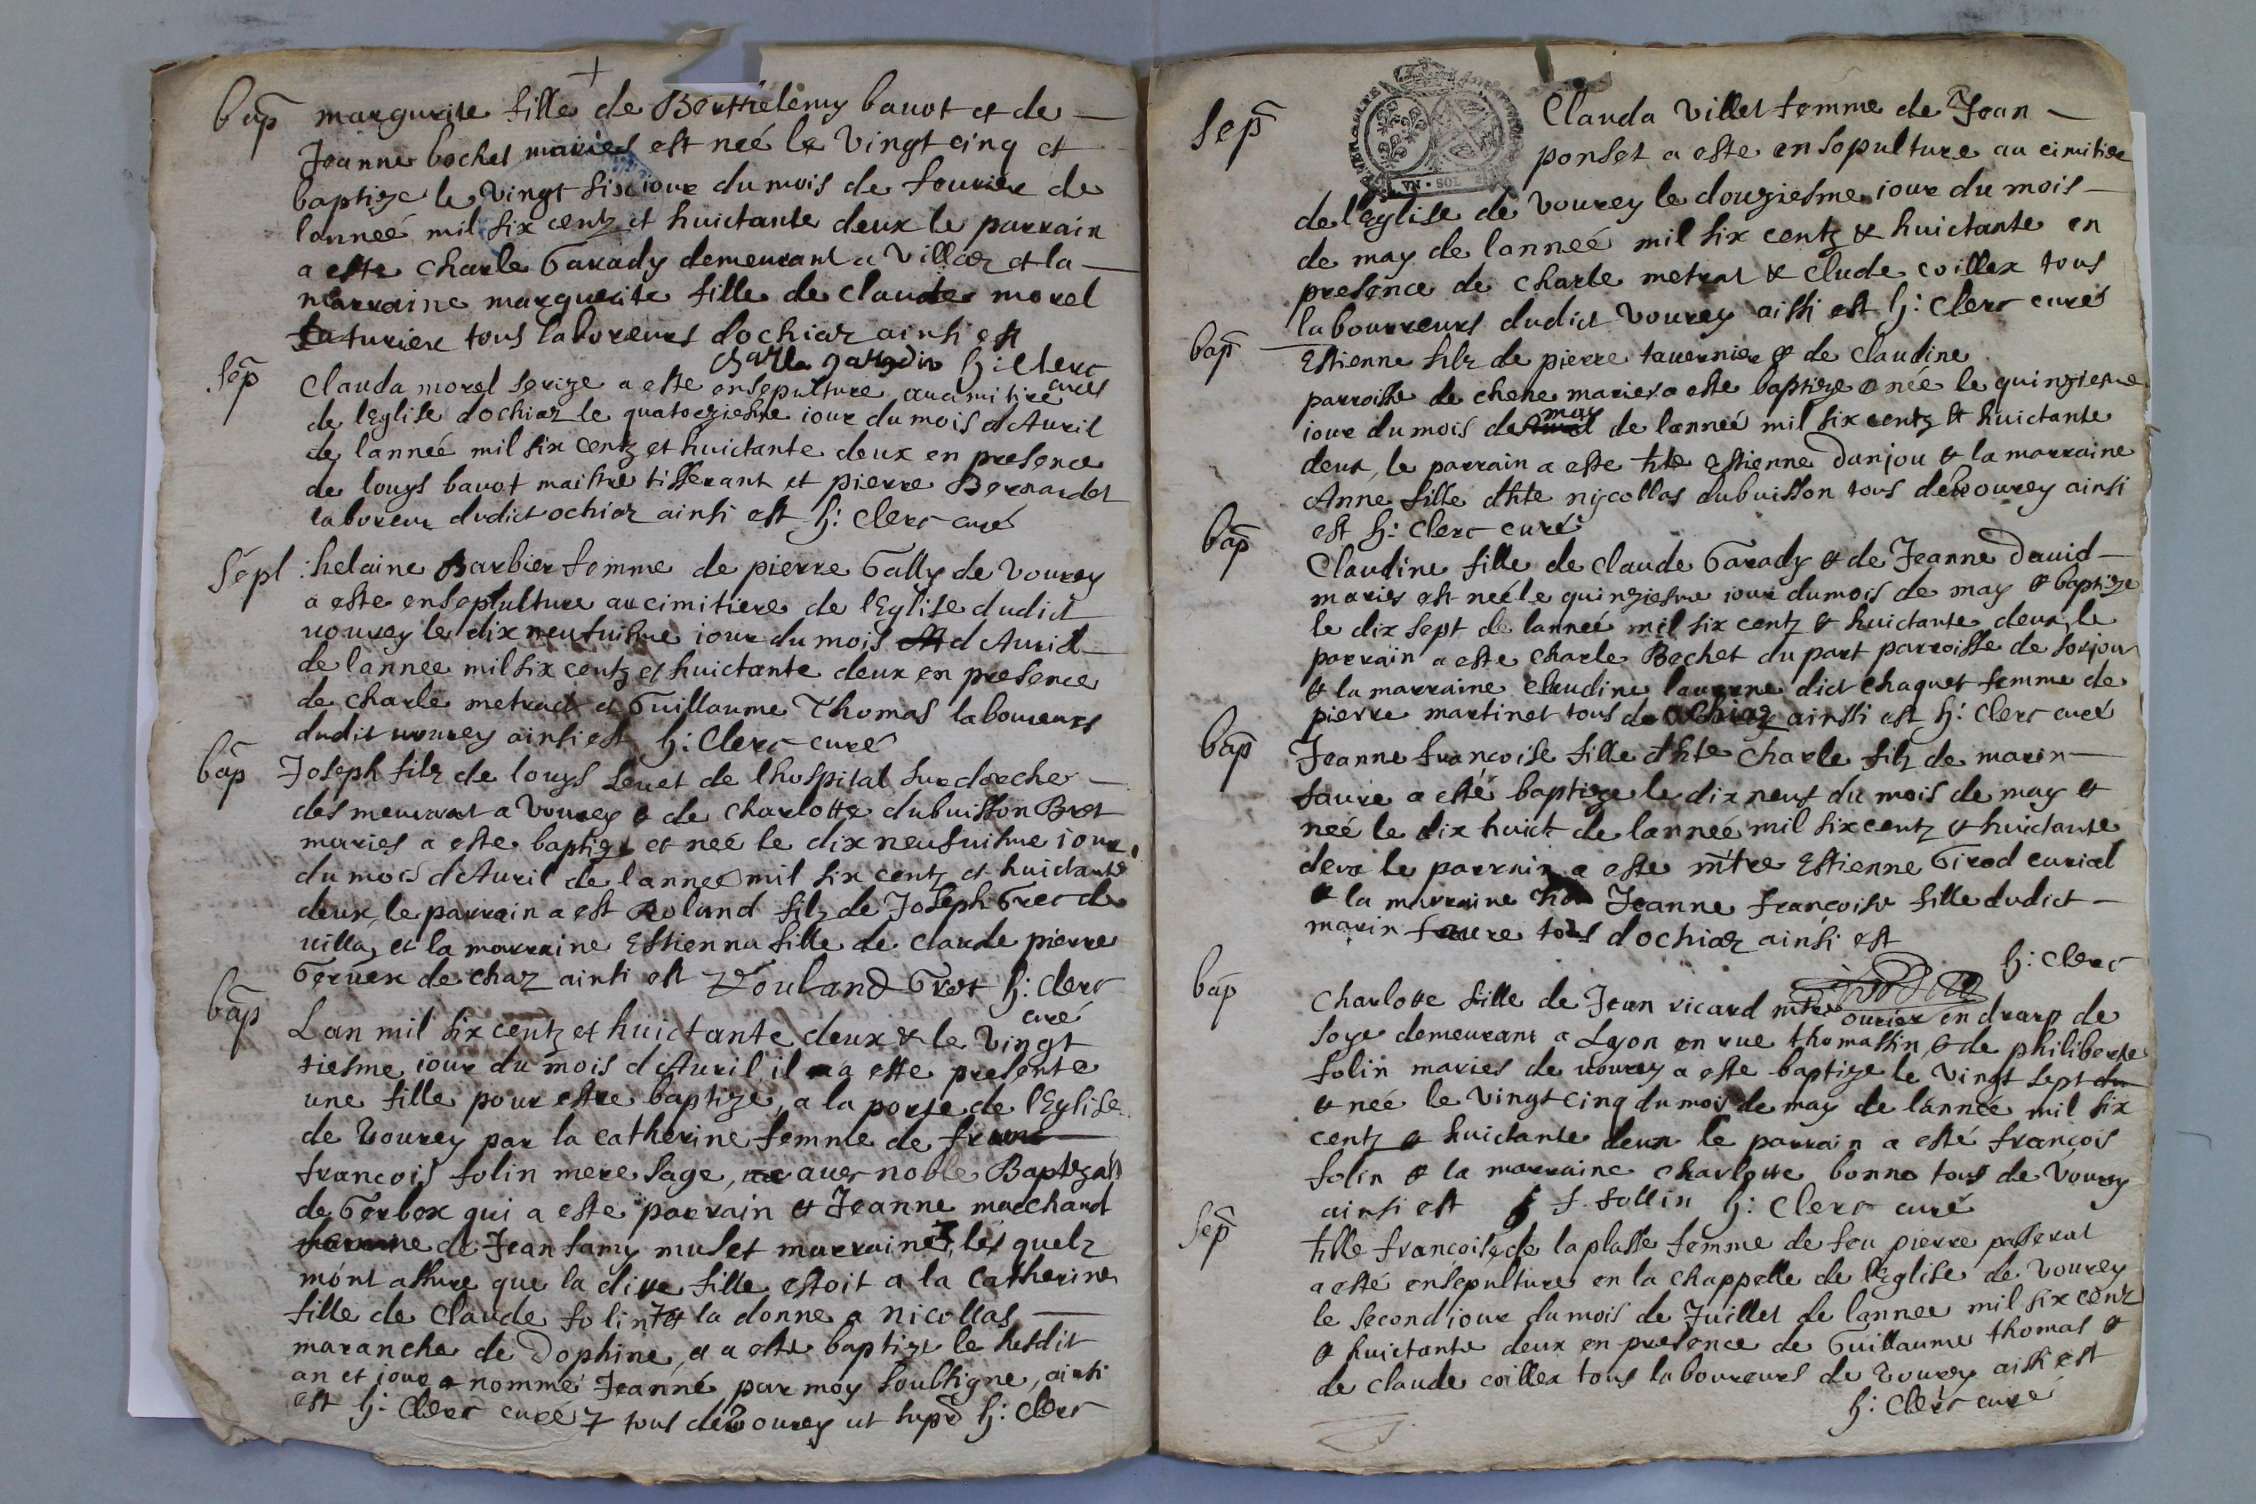 bap marguerite fille de Berthelemy bauot et de
Jeanne bochet mariés est neé le vingt cinq et
baptize le vingt six iour du mois de feurier de
lanneé mil six centz et huictante deux le parrain
a este charle Garady demeurant a Villaz et la
marraine marguerite fille de claude morel
tous laboreurs dochiaz ainsi est
h: clerc
curé
sep Clauda morel a este ensepulture au cimitire
de leglise dochiaz le quatorziesme iour du mois dAuril
de lanneé mil six centz et huictante deux en presence
de louys bauot maistre tisserant et pierre Bernardet
laboreur dudict ochiaz ainsi est h: clerc curé
sepl : helaine Barbier femme de pierre Gally de vourey
a este ensepulture au cimitiere de lEglise dudict
vourey le dix neufuisme iour du mois dAuril
de lannee mil six centz et huictante deux en presence
de charle metrad et Guillaume Thomas laboureurs
dudit vourey ainsi est h: Clerc curé
bap Joseph filz de louys de lhospital sur
a vourey & de charlotte dubuisson
maries a este baptize et neé le dix neufuisme iour
du mois dAuril de lanneé mil six centz et huictante
deux, le parrain a est Roland filz de Joseph de
villaz et la marraine Estienna fille de claude pierre
de chaz ainsi est h: clerc
curé
bap Lan mil six centz et huictante deux & le vingt
tiesme iour du mois dAuril il a este presente
une fille pour estre baptize, a la porte de lEglise
de vourey par la catherine femme de
francois folin mere sage, auec noble
de Gerbex qui a este parrain et Jeanne marchand
de Jean lamy muset marraine, les quelz
mont assure que la dite fille estoit a la Catherine
fille de Claude folin & la donne a nicollas
maranche de Dophine, a este baptize le susdit
an et iour & nommé Jeanne par moy soubsigne, ainsi
est h: Clerc curé tous de vourey ut supra h: Clerc
sep Clauda villet femme de Jean
ponset a este ensepulture au cimitiee
VN · SOL
de lEglise de vourey le dougiesme iour du mois
de may de lanneé mil six centz & huictante en
presence de charle metrat & clude coillex tous
labourreurs dudict vourey aissi est h: Clerc curés
bap Estienne filz de pierre tauernier & de claudine
parroisse de chene maries a este baptize & née le quinziesme
may
iour du mois de de lanneé mil six centz & huictante
deux, le parrain a este hte Estienne danjou & la marraine
Anne fille dhte nycollas dubuisson tous de vourey ainsi
est h: Clerc curé
bap Claudine fille de claude Garady & de Jeanne dauid
maries est neé le quinziesme iour du mois de may & baptize
le dix sept de lanneé mil six centz & huictante deux, le
parrain a este charle Bochet du part parroisse de
& la marraine claudine dict chaquet femme de
pierre martinet tous de ochiaz ainssi est h: Clerc curé
bap Jeanne francoise fille dhte Charle filz de marin
faure a esté baptize le dix neuf du mois de may &
neé le dix huict de lanneé mil six centz & huictante
deux le parrain a este mtre Estienne Girod curial
& la marraine Jeanne francoise fille dudict
marin faure tous dochiaz ainsi est
h: Clerc
bap Charlotte fille de Jean ricard mtre ourier en drarp de
soye demeurant a Lyon en rue thomassin, & de philiberte
folin maries de vourey a este baptize le vingt sept du
& neé le vingt cinq du mois de may de lannéé mil six
centz & huictante deux le parrain a esté françois
folin & la marraine charlotte bonne tous de vourey
ainsi est f. follin h: Clerc curé
sep francoise de la plasse femme de feu pierre passerat
a esté ensepulture en la chappelle de lEglise de vourey
le second iour du mois de Juillet de lannee mil six centz
& huictante deux en presence de Guillaume thomas &
de claude coillex tous laboureurs de vourey aissi est
h: Clerc curé